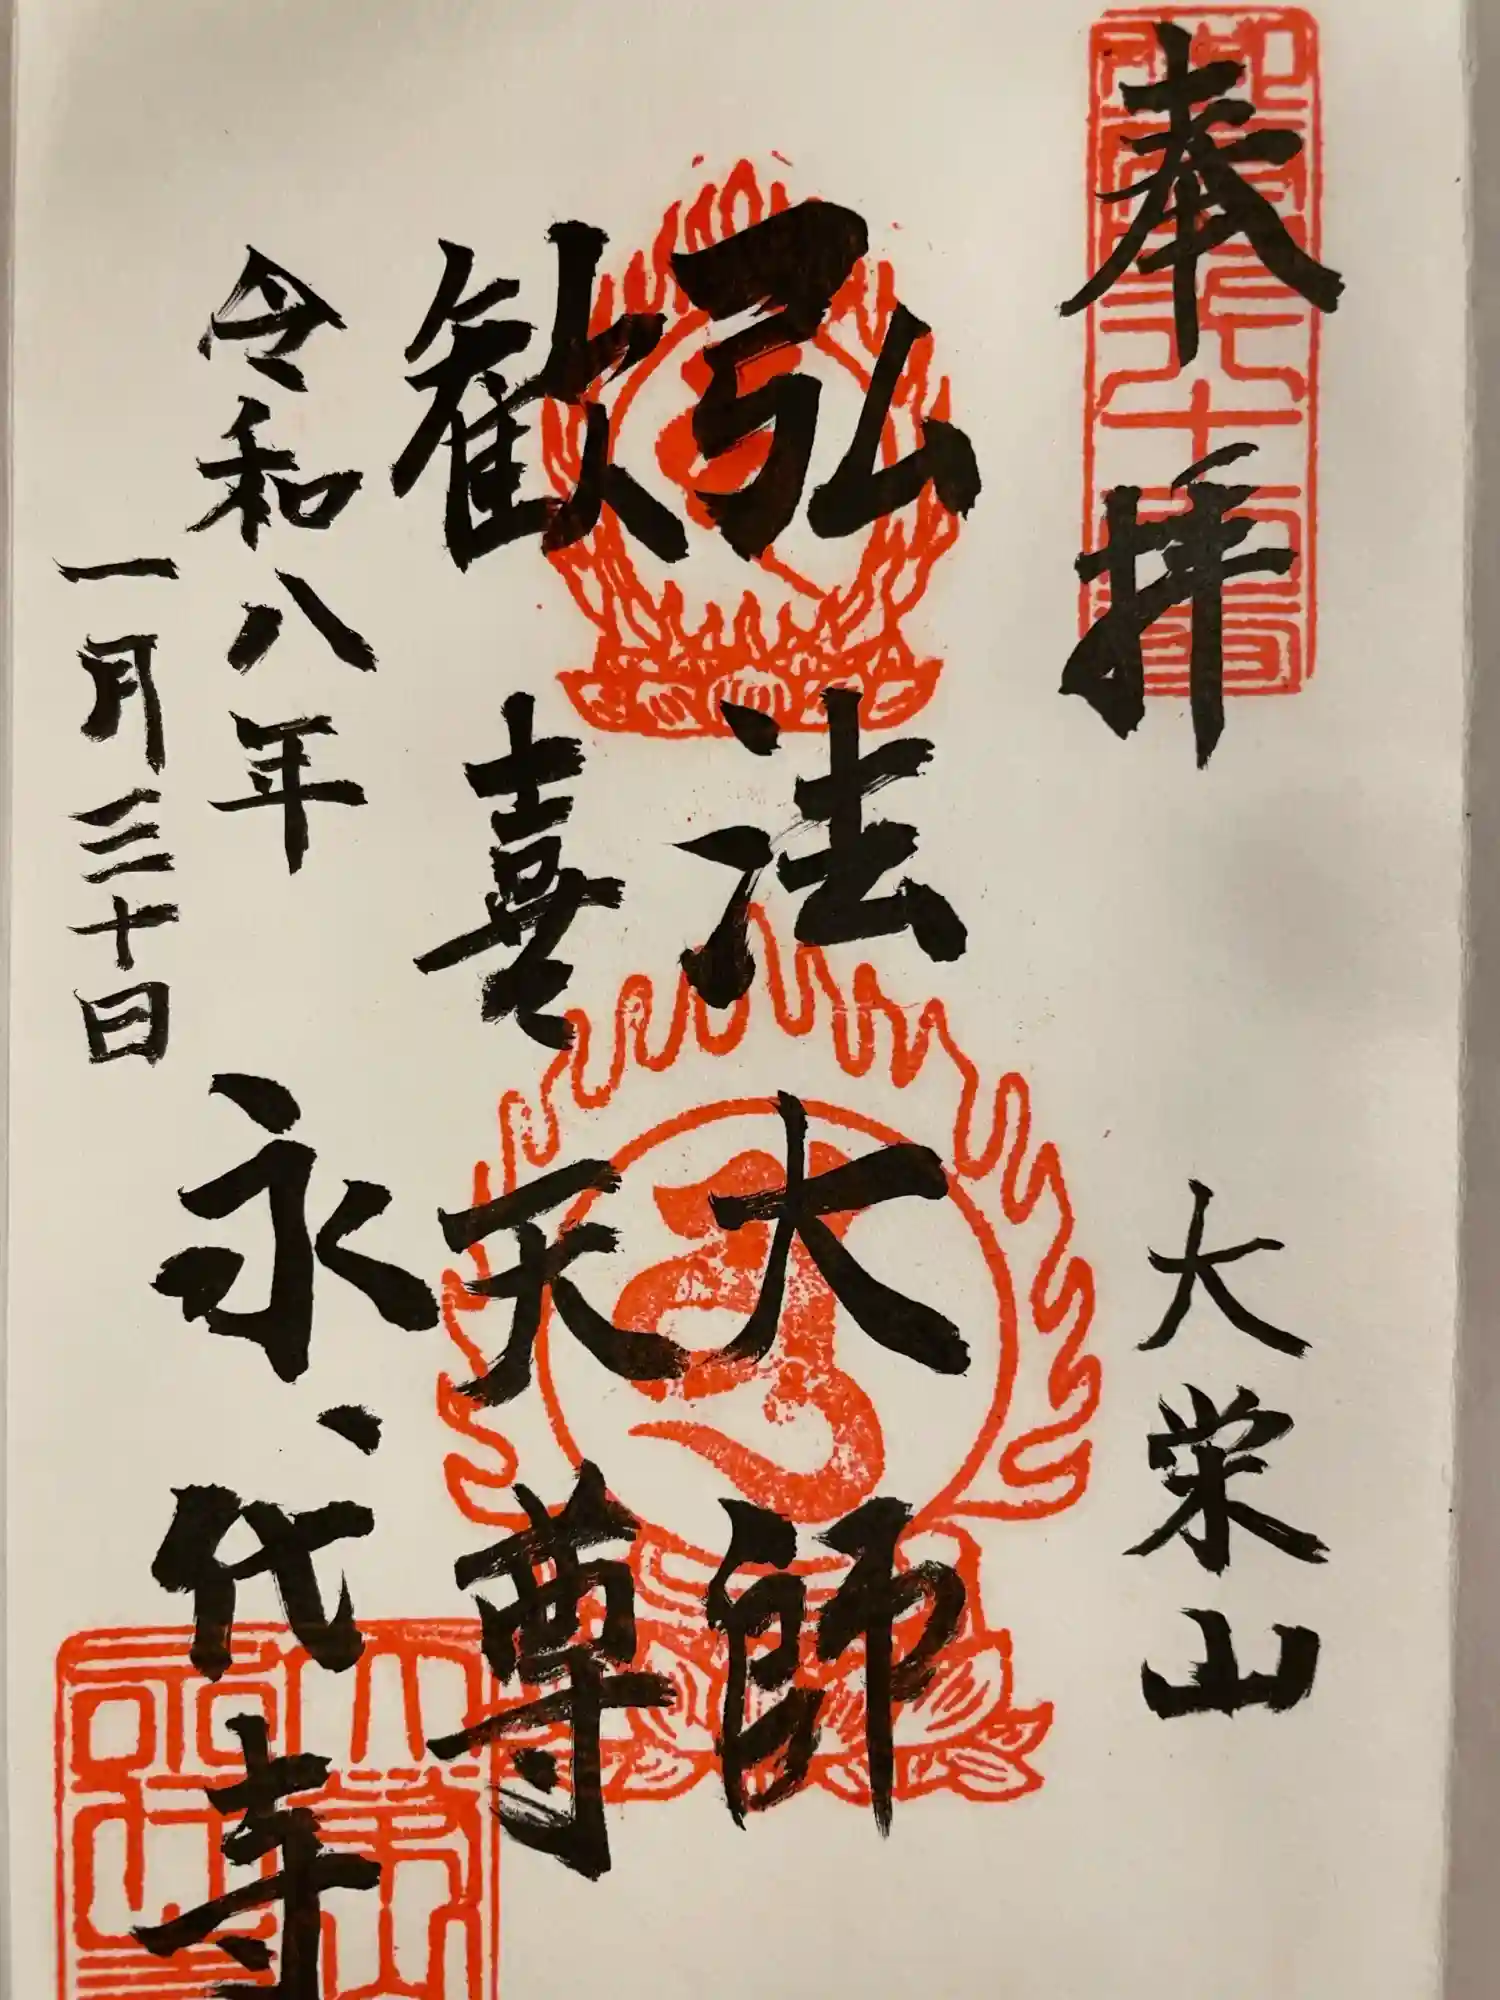 奉拝
大栄山
弘法大師
歓喜天尊
永代寺
令和八年
一月三十日